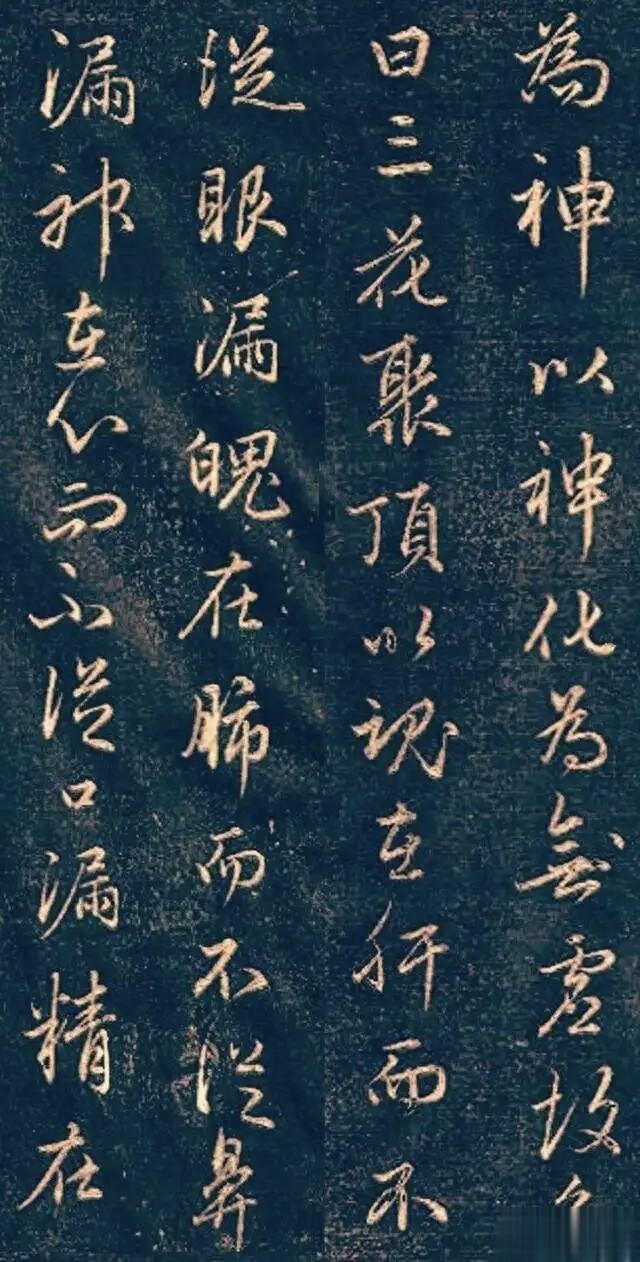 為神以神化為無虛故
曰三花聚頂以魂在肝而不
從眼漏魄在肺而不從鼻
漏神在心而不從口漏精在